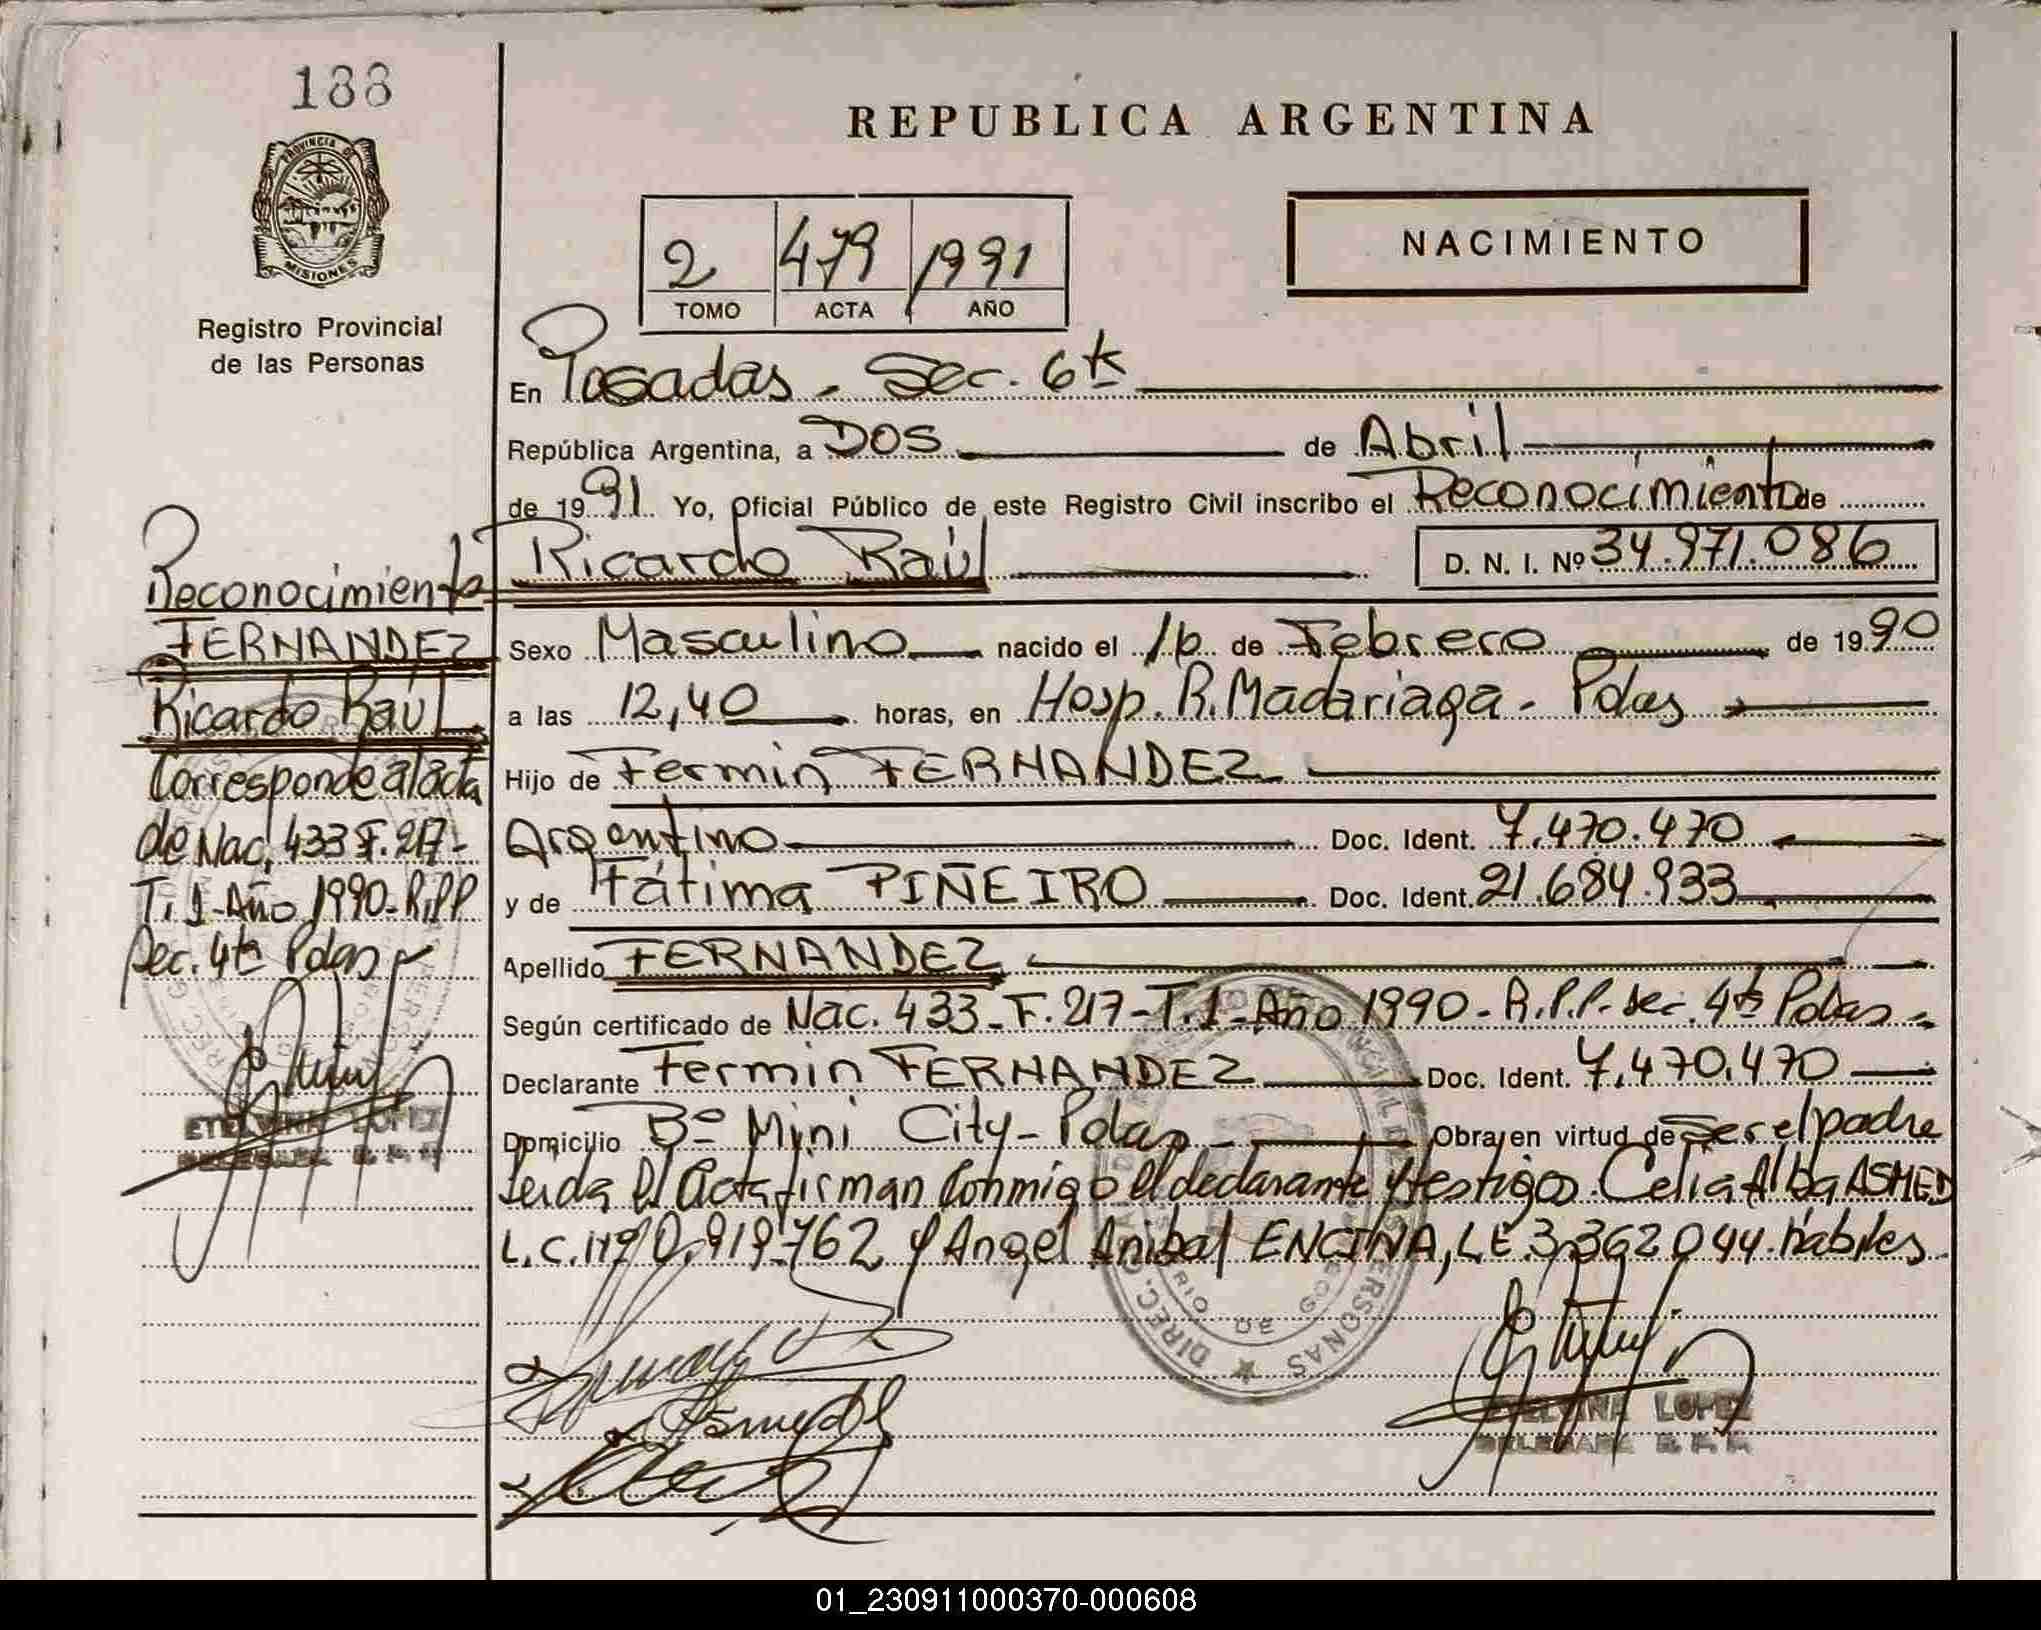 188
PROVINCIA DE
MISIONES
Registro Provincial
de las Personas
REPUBLICA ARGENTINA
2 479 1991
TOMO ACTA AÑO
NACIMIENTO
En Posadas - Sec. 6ta
República Argentina, a DOS de Abril
de 1991 Yo, Oficial Público de este Registro Civil inscribo el Reconocimiento de
Ricardo Raúl D. N. I. Nº 34.971.086
Sexo Masculino nacido el 16 de Febrero de 1990
a las 12,40 horas, en Hosp. R. Madariaga - Pdas
Hijo de Fermin FERNANDEZ
Argentino Doc. Ident. 7.470.470
y de Fátima PIÑEIRO Doc. Ident. 21.684.933
Apellido FERNANDEZ
Según certificado de Nac. 433 - F. 217 - T. 1 - Año 1990 - R.P.P. Sec. 4ta Pdas -
Declarante Fermin FERNANDEZ Doc. Ident. 7.470.470
Domicilio Bº Mini City - Pdas - Obra en virtud de Ser el padre
Leida el Acta firman conmigo el declarante y testigos. Celia Alba ASMED
L.C. Nº 0.919.762 y Angel Anibal ENCINA, LE 3.362.044. hábiles
Reconocimiento
FERNANDEZ
Ricardo Raúl
Corresponde al acta
de Nac. 433 F. 217 -
T. 1 - Año 1990 - R.P.P
Sec. 4ta Pdas
ETELVINA LOPEZ
DELEGADA R. P. P.
DIREC. G PROVINCIAL DE PERSONAS
RIO DE GOB
ETELVINA LOPEZ
DELEGADA R. P. P.
01_230911000370-000608